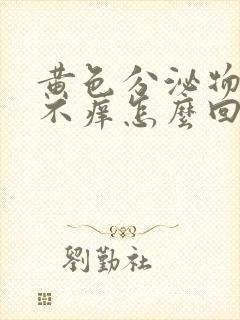 黄色分泌物
不痒怎麼回
劉勤社